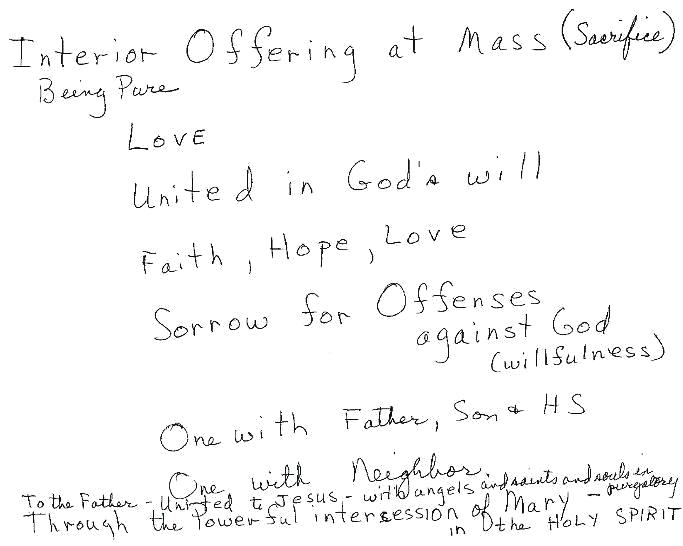 Interior Offering at Mass (Sacrifice)
Being Pure
Love
United in God's will
Faith, Hope, Love
Sorrow for Offenses
against God
(willfulness)
One with Father, Son & HS
One with Neighbor.
To the Father - United to Jesus - with angels and saints and souls in
purgatory
Through the Powerful intercession of Mary -
in the HOLY SPIRIT